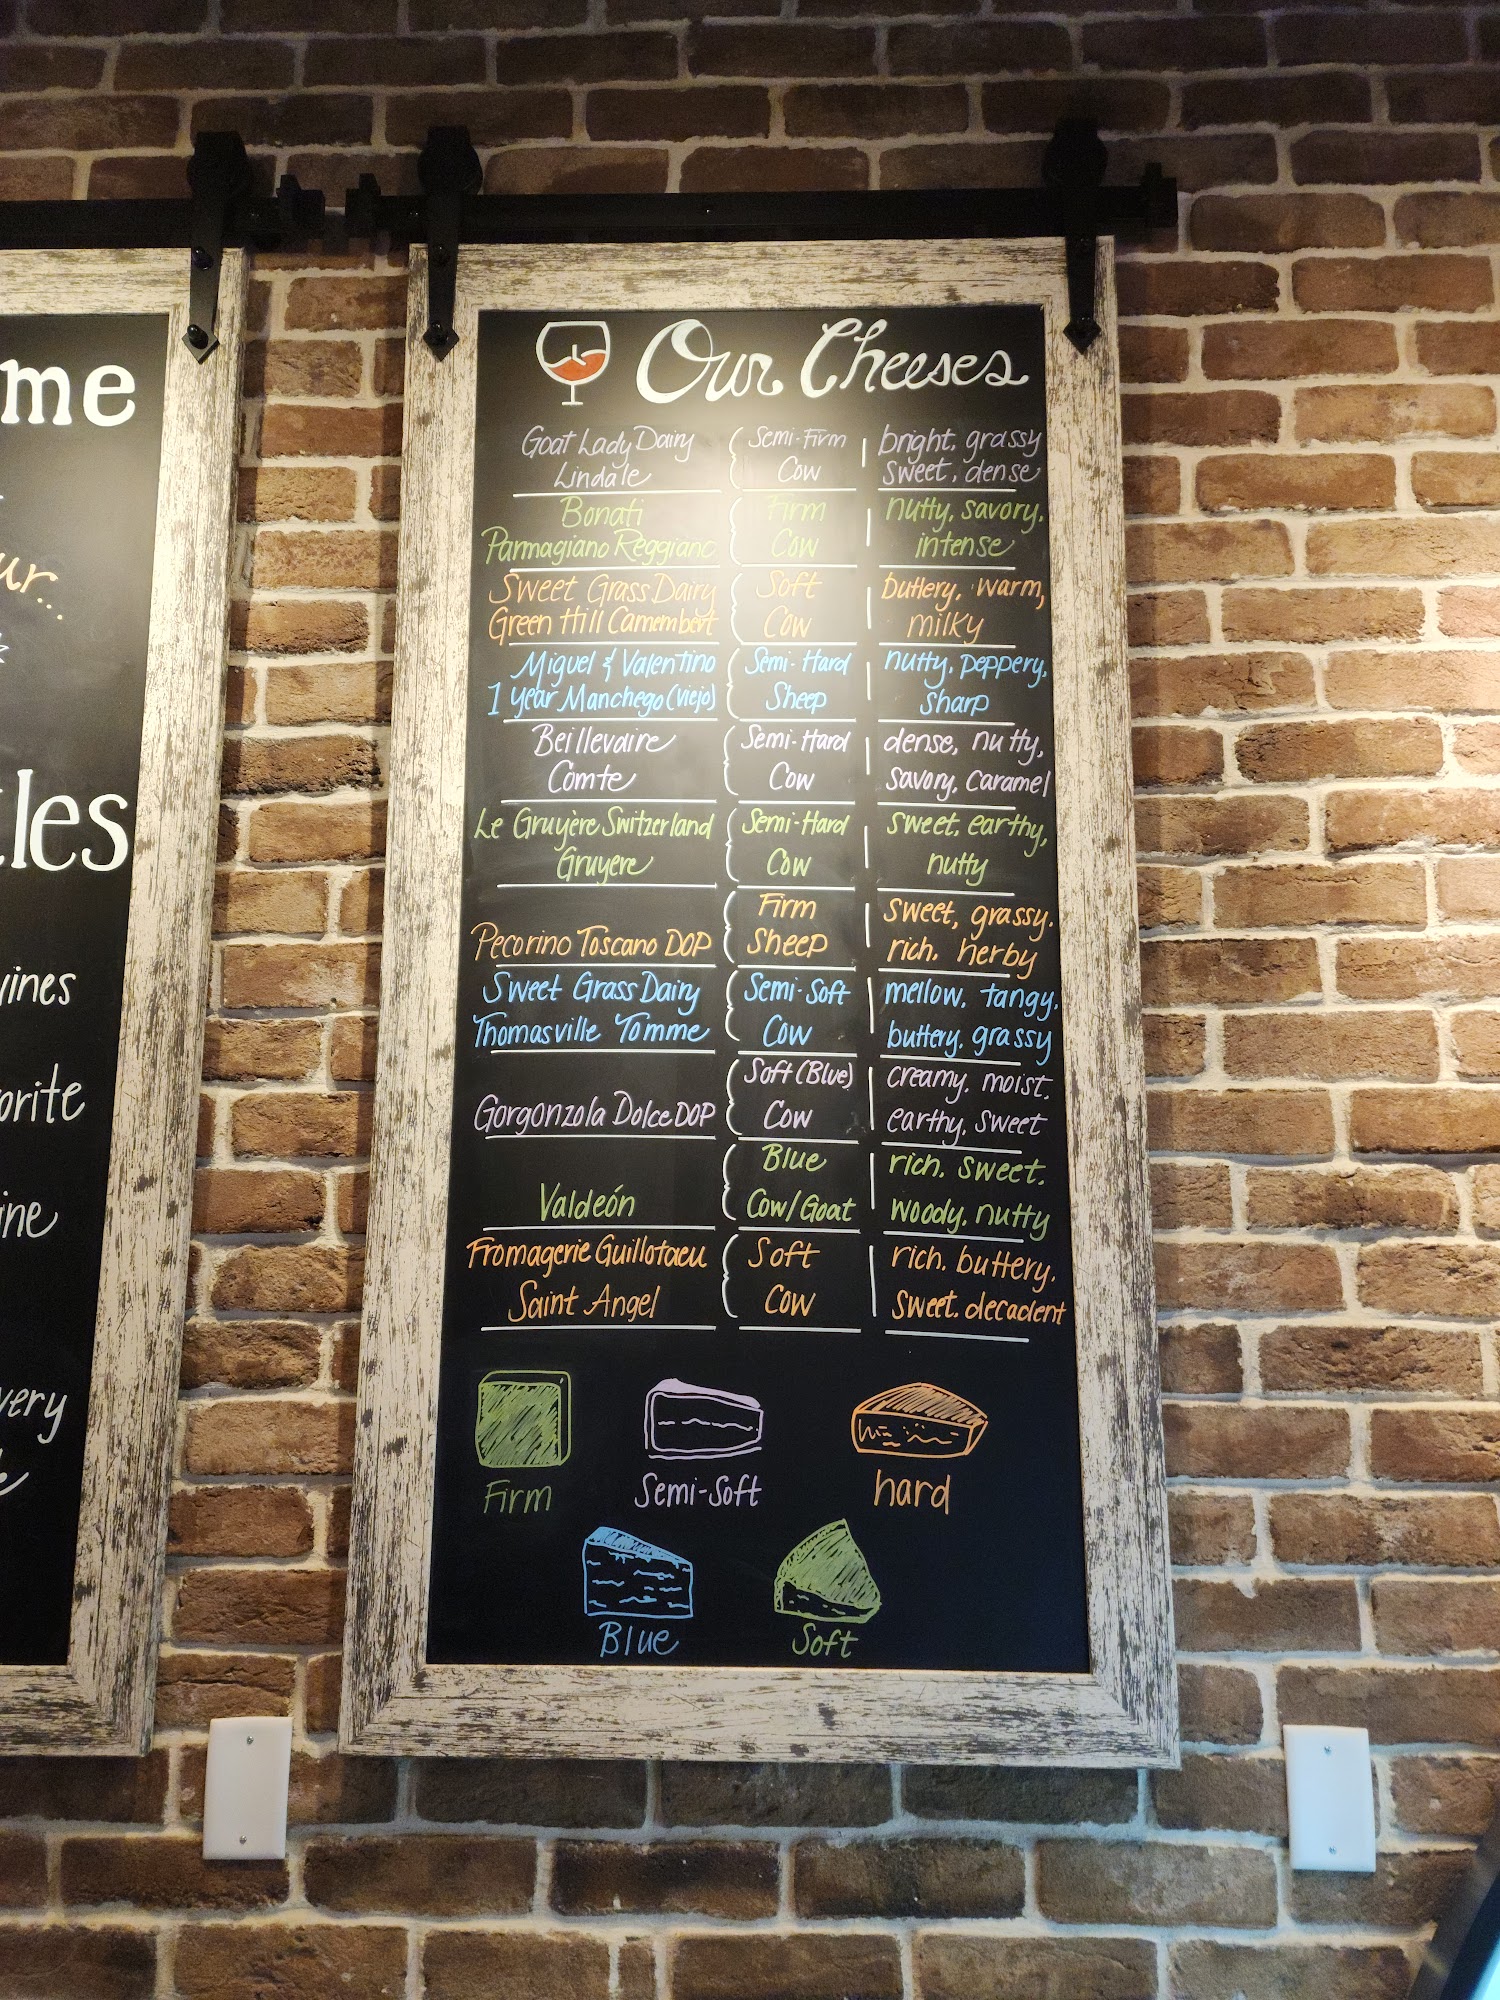 me
ur...
les
wines
orite
ine
very
Our Cheeses
Goat Lady Dairy Semi-Firm bright, grassy
Lindale Cow sweet, dense
Bonati Firm nutty, savory,
Parmagiano Reggiano Cow intense
Sweet Grass Dairy Soft buttery, warm,
Green Hill Camembert Cow milky
Miguel & Valentino Semi-Hard nutty, peppery,
1 year Manchego (Viejo) Sheep sharp
Beillevaire Semi-Hard dense, nutty,
Comte Cow savory, caramel
Le Gruyère Switzerland Semi-Hard sweet, earthy,
Gruyere Cow nutty
Firm sweet, grassy,
Pecorino Toscano DOP Sheep rich, herby
Sweet Grass Dairy Semi-Soft mellow, tangy,
Thomasville Tomme Cow buttery, grassy
Soft (Blue) creamy, moist,
Gorgonzola Dolce DOP Cow earthy, sweet
Blue rich, sweet,
Valdeón Cow/Goat woody, nutty
Fromagerie Guilloteau Soft rich, buttery,
Saint Angel Cow sweet, decadent
Firm Semi-Soft hard
Blue Soft